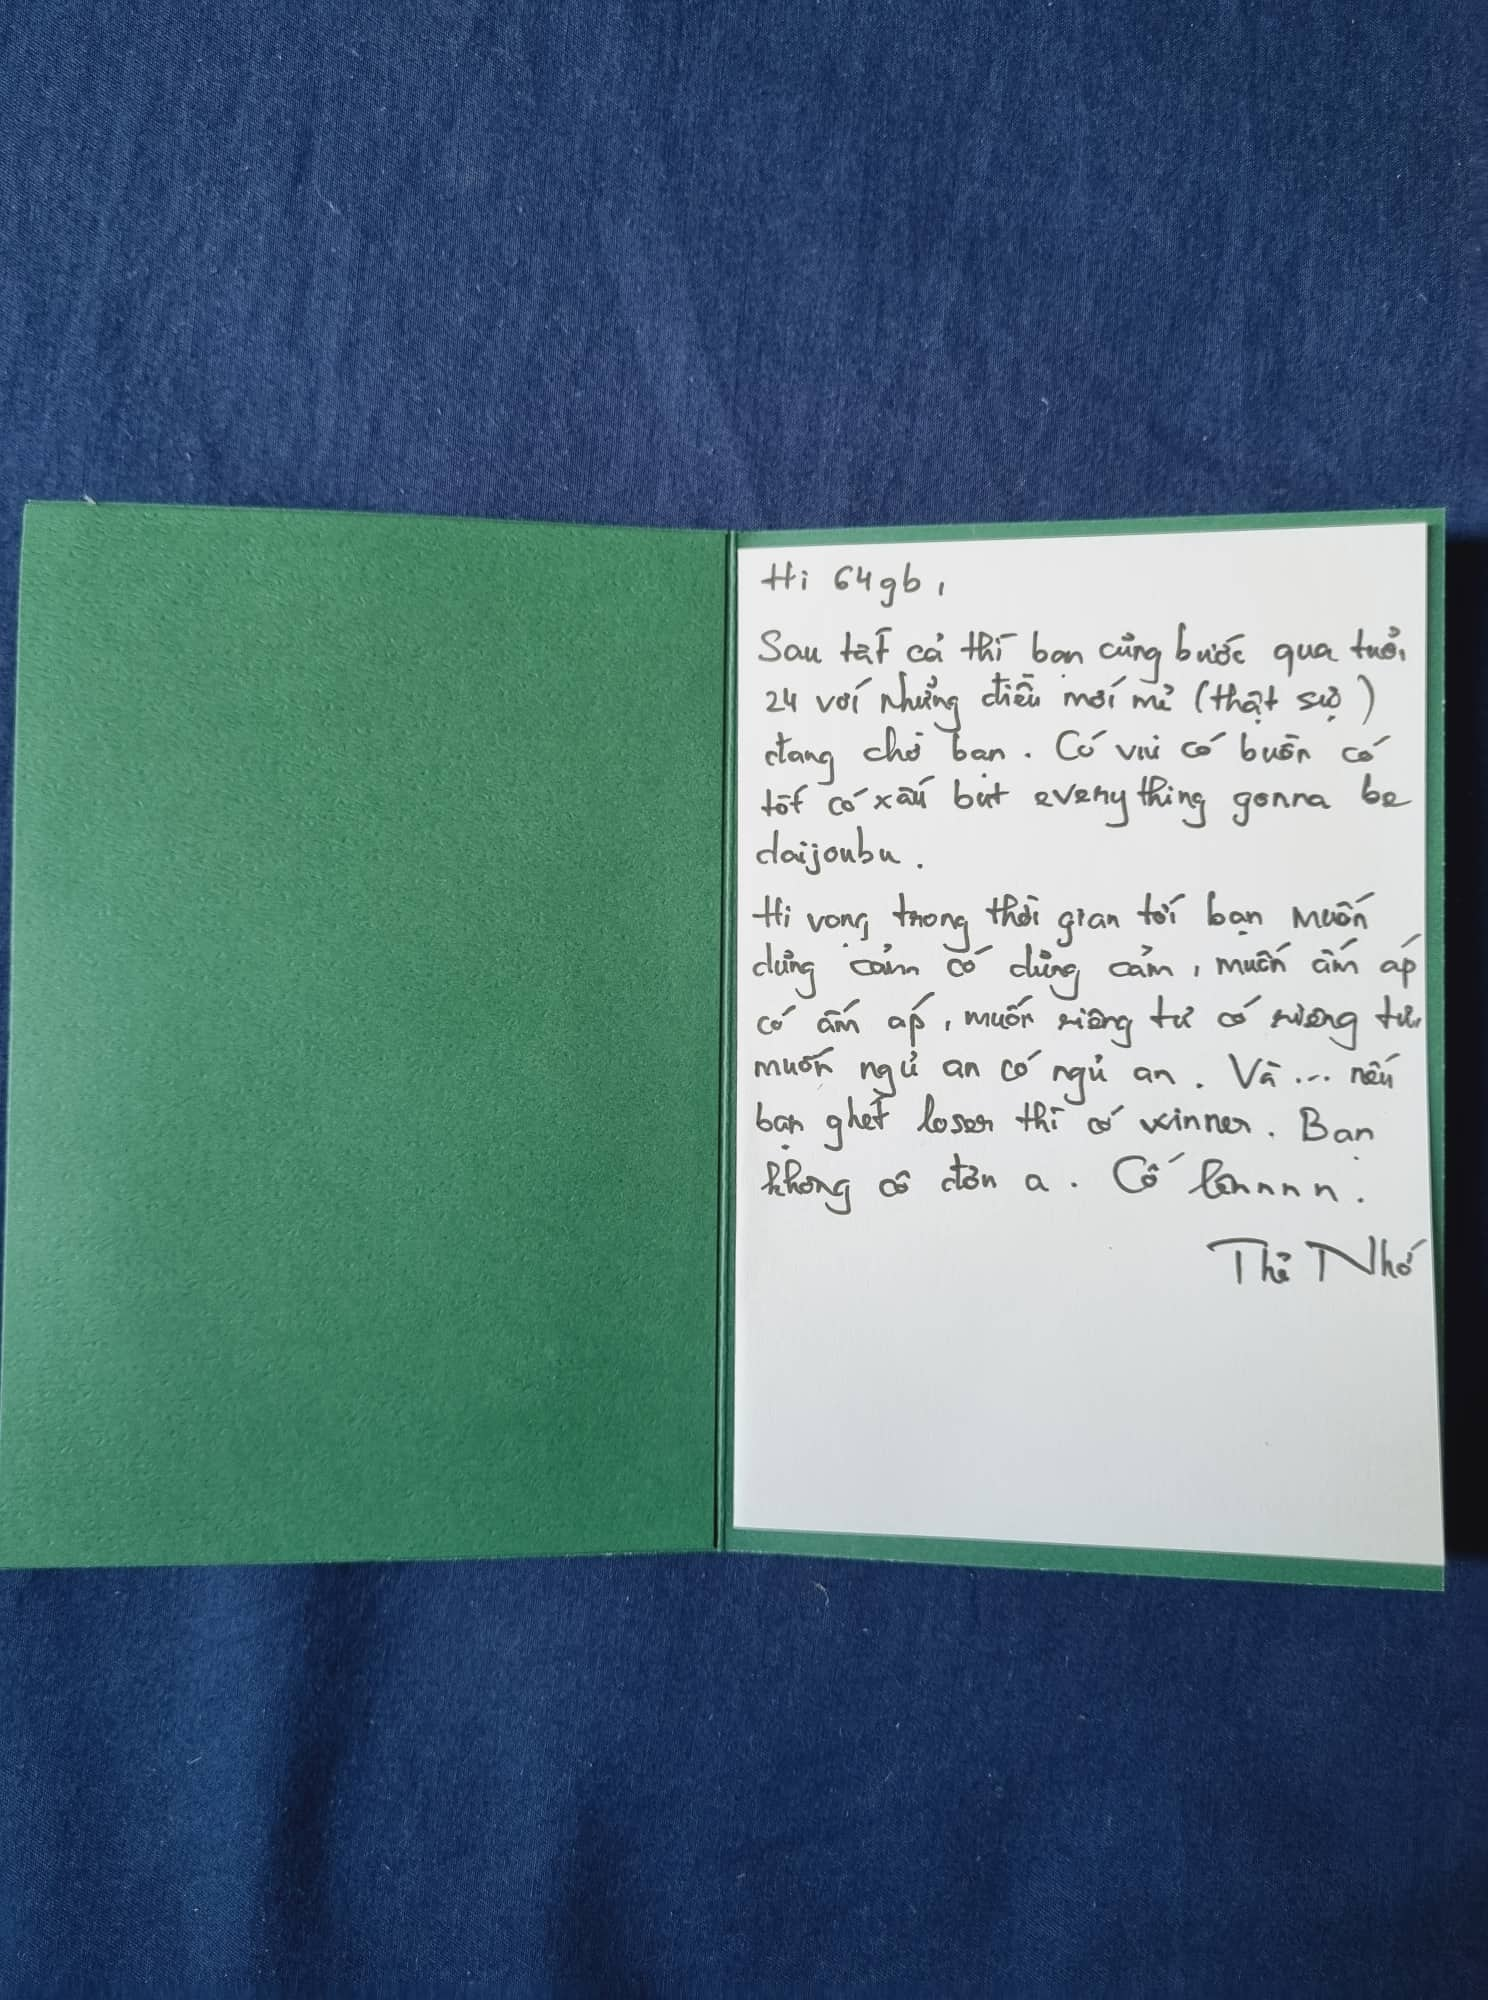 Hi 64gb,
Sau tất cả thì bạn cũng bước qua tuổi
24 với những điều mới mẻ (thật sự)
đang chờ bạn. Có vui có buồn có
tốt có xấu but everything gonna be
daijoubu.
Hi vọng trong thời gian tới bạn muốn
dũng cảm có dũng cảm, muốn ấm áp
có ấm áp, muốn riêng tư có riêng tư,
muốn ngủ an có ngủ an. Và... nếu
bạn ghét loser thì có winner. Bạn
không cô đơn a. Cố lênnnn.
Thỏ Nhớ